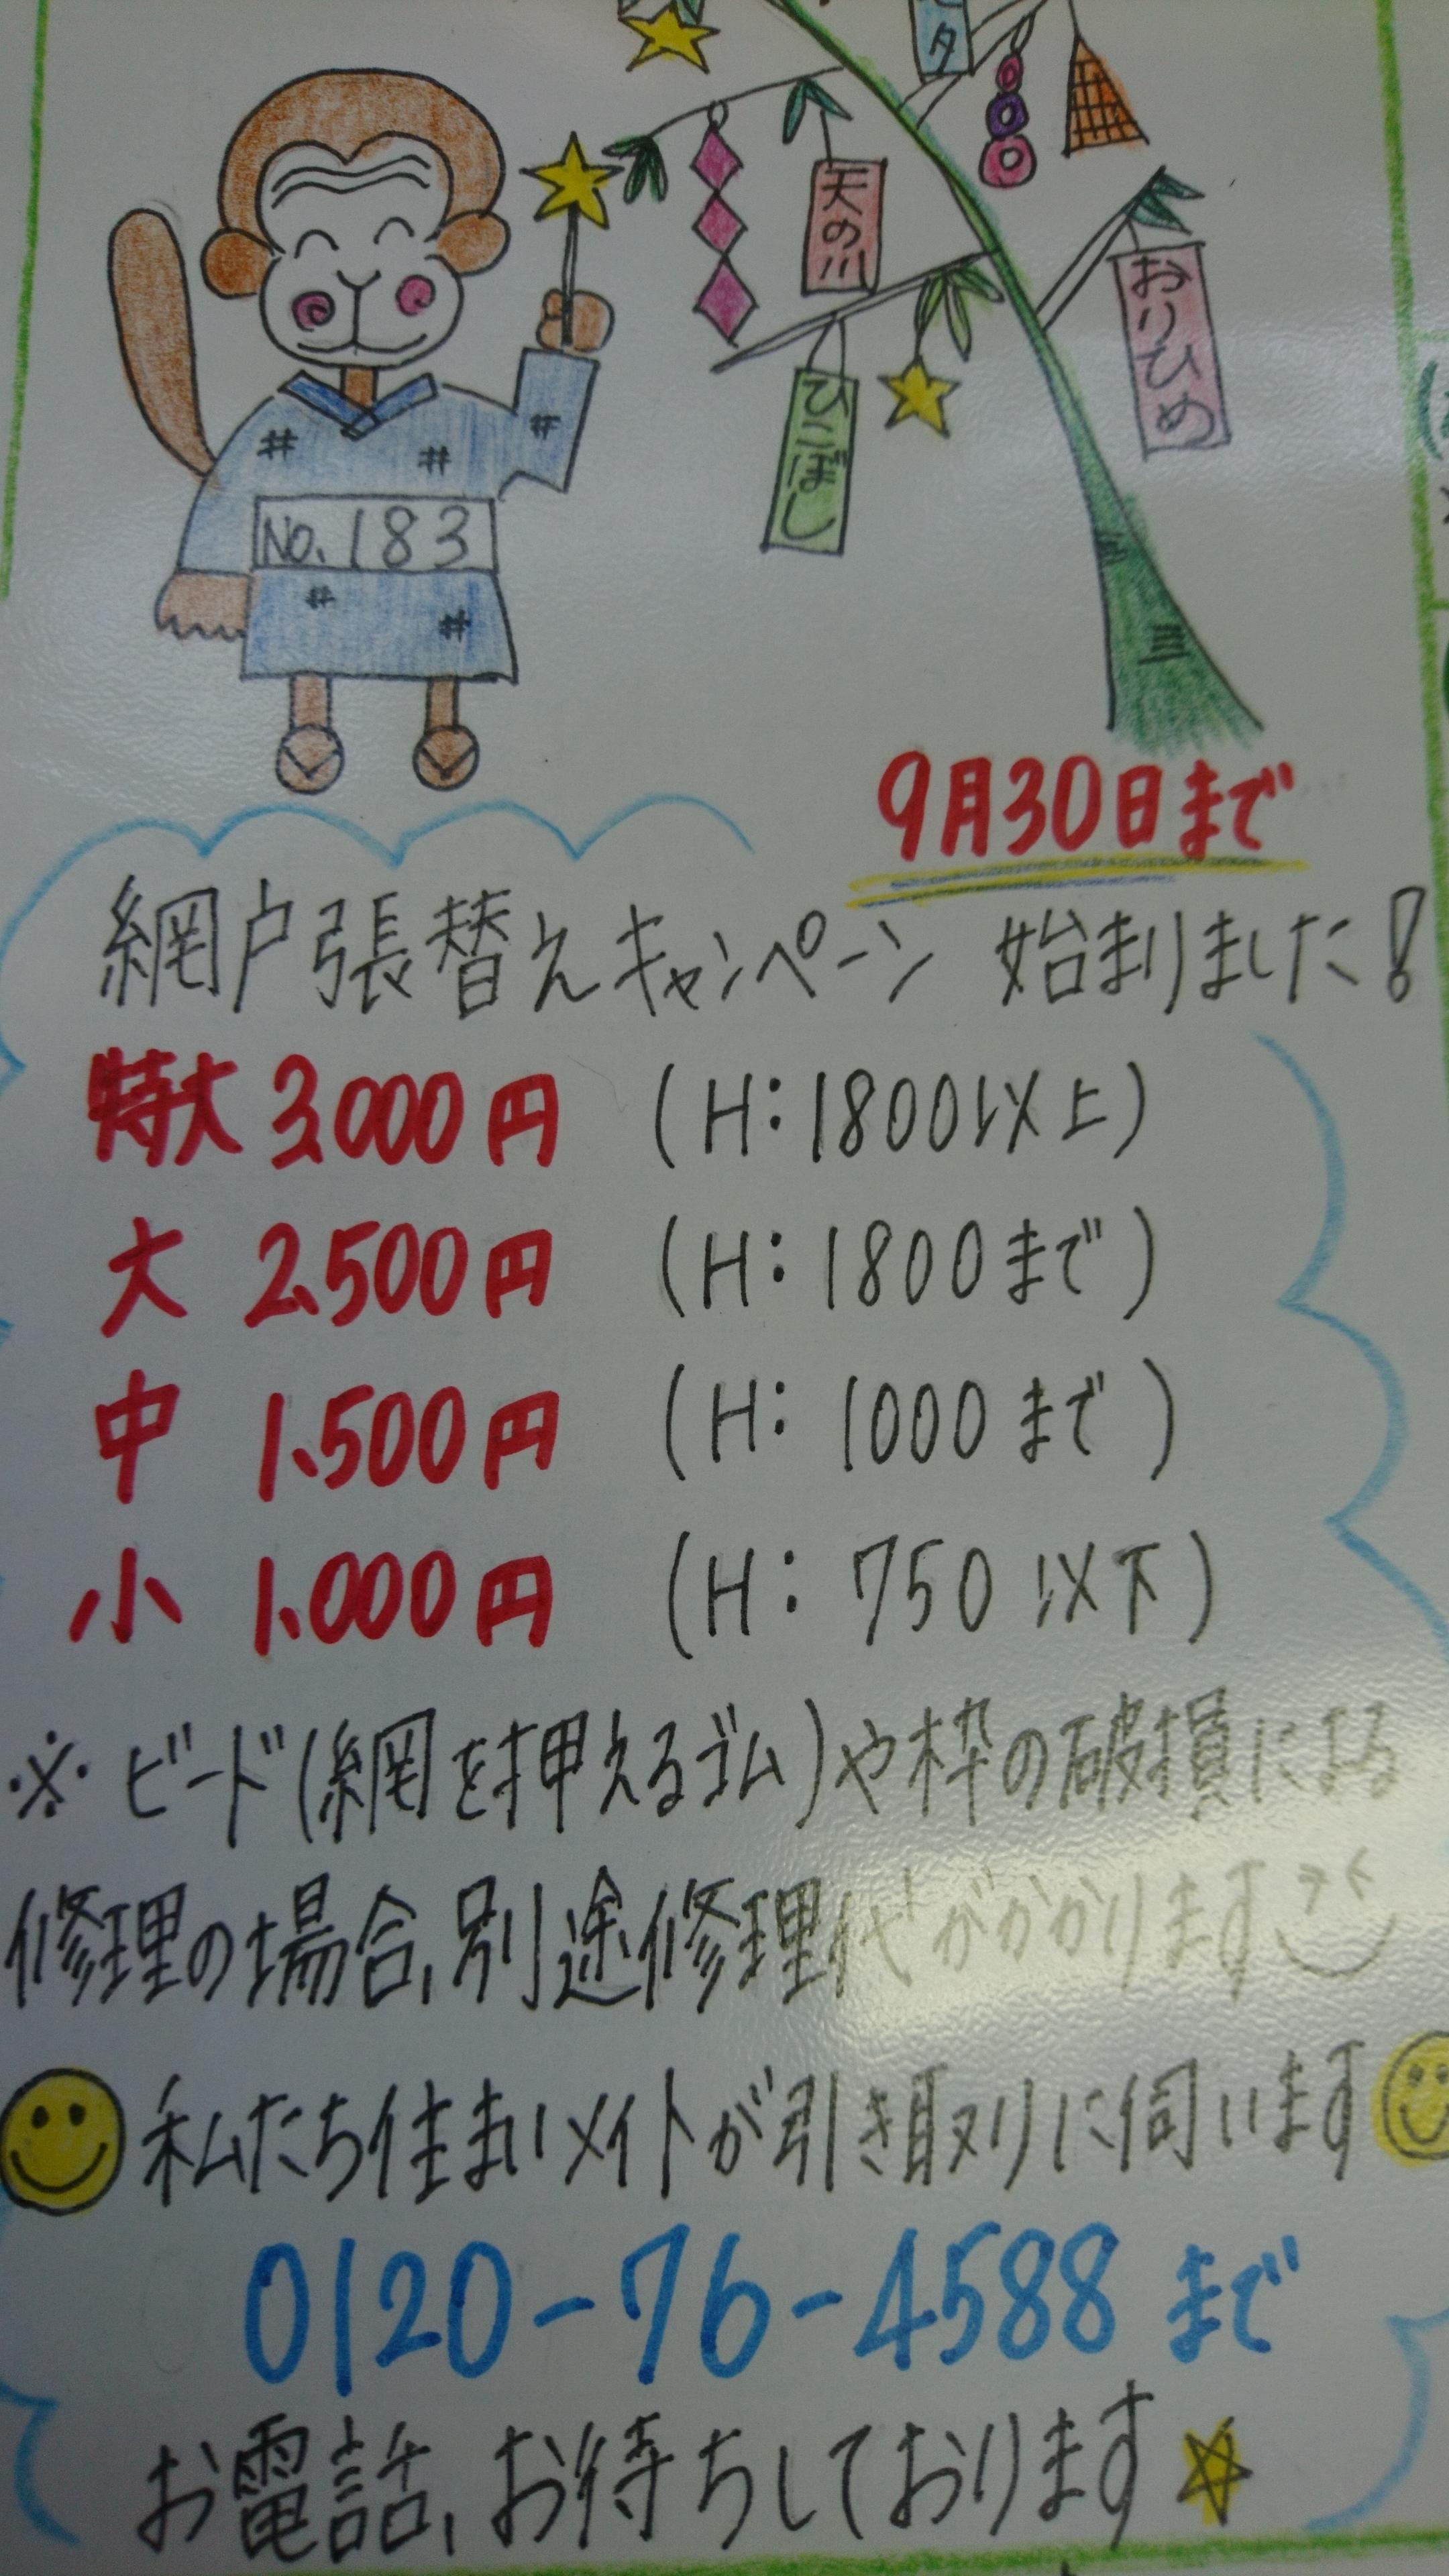 タ
天の川
おりひめ
ひこぼし
No.183
9月30日まで
網戸張替えキャンペーン 始まりました!
特大 3.000円 (H:1800以上)
大 2.500円 (H:1800まで)
中 1.500円 (H:1000まで)
小 1.000円 (H:750以下)
※ビード(網を押えるゴム)や枠の破損による
修理の場合、別途修理代がかかります
私たち住まいメイトが引き取りに伺います
0120-76-4588まで
お電話、お待ちしております☆